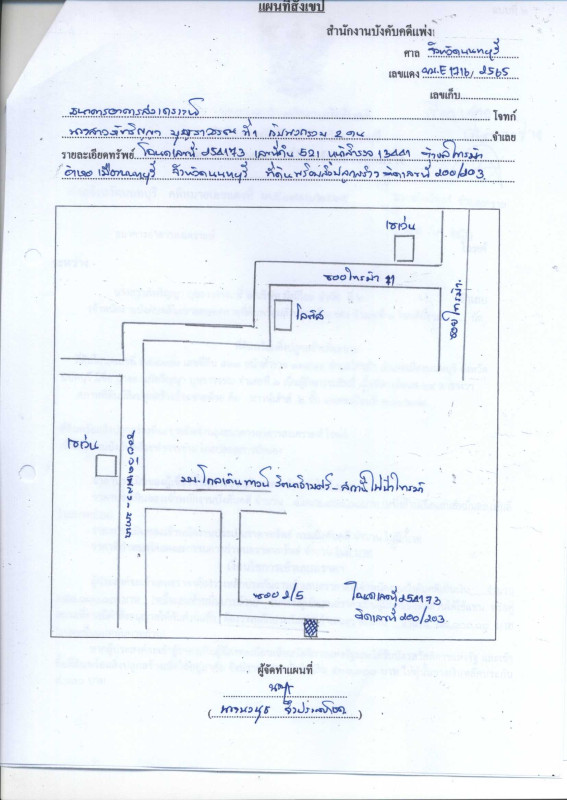 แผนที่สังเขป
สำนักงานบังคับคดีแพ่ง
ศาล จังหวัดนนทบุรี
เลขแดง ผบ.E 1716/2565
เลขเก็บ
ธนาคารอาคารสงเคราะห์ โจทก์
นางสาว ที่ 1 กับพวกรวม 2 คน จำเลย
รายละเอียดทรัพย์ โฉนดเลขที่ 254173 เลขที่ดิน 521 หน้าสำรวจ 13441 ตำบลไทรม้า
อำเภอเมืองนนทบุรี จังหวัดนนทบุรี ที่ดินพร้อมสิ่งปลูกสร้าง เลขที่ 200/203
เซเว่น
ซอยไทรม้า 11
ซอยไทรม้า
โลตัส
เซเว่น
มบ.โกลเด้นทาวน์ รัตนาธิเบศร์-สถานีไฟฟ้าไทรม้า
ซอย 2/5
โฉนดเลขที่ 254173
เลขที่ 200/203
ผู้จัดทำแผนที่